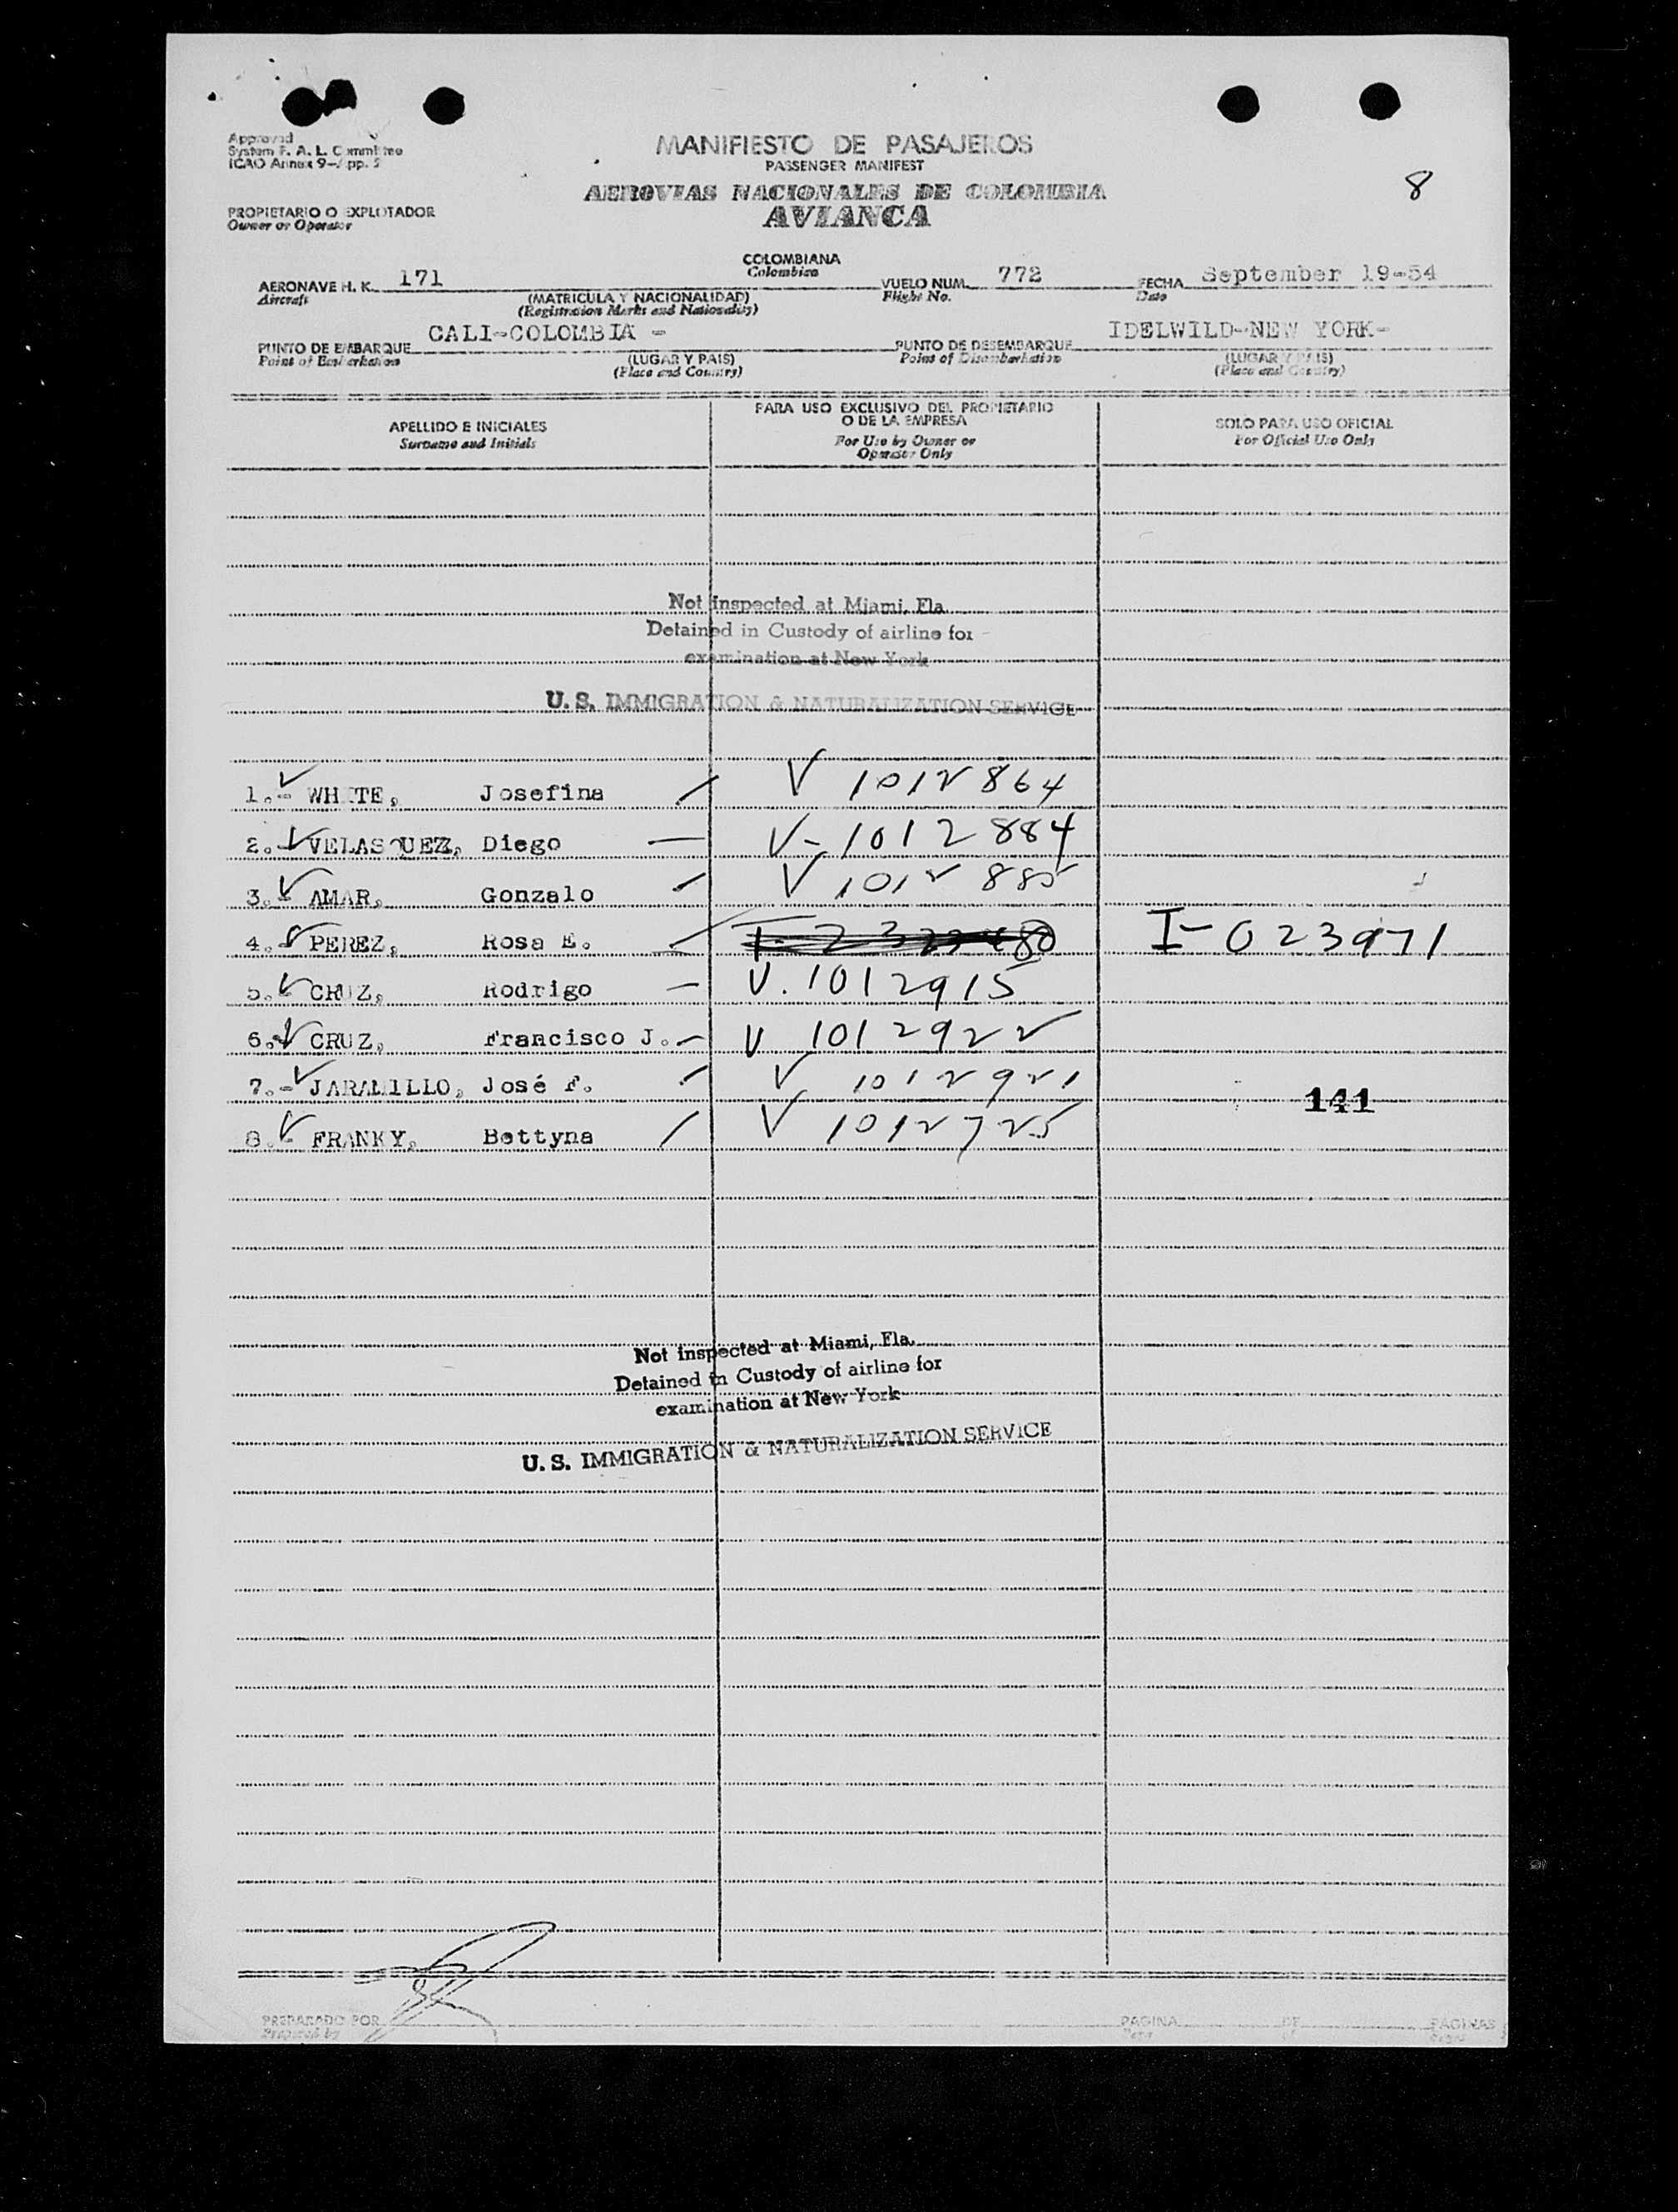 Approved
System F. A. L. Committee
ICAO Annex 9-App. 5
MANIFIESTO DE PASAJEROS
PASSENGER MANIFEST
AEROVIAS NACIONALES DE COLOMBIA
AVIANCA
8
PROPIETARIO O EXPLOTADOR
Owner or Operator
COLOMBIANA
Colombian
AERONAVE H. K. 171
Aircraft
(MATRICULA Y NACIONALIDAD)
(Registration Marks and Nationality)
VUELO NUM. 772
Flight No.
FECHA September 19-54
Date
PUNTO DE EMBARQUE CALI-COLOMBIA -
Point of Embarkation
(LUGAR Y PAIS)
(Place and Country)
PUNTO DE DESEMBARQUE IDELWILD-NEW YORK-
Point of Disembarkation
(LUGAR Y PAIS)
(Place and Country)
APELLIDO E INICIALES
Surname and Initials
PARA USO EXCLUSIVO DEL PROPIETARIO
O DE LA EMPRESA
For Use by Owner or
Operator Only
SOLO PARA USO OFICIAL
For Official Use Only
Not inspected at Miami, Fla.
Detained in Custody of airline for
examination at New York
U. S. IMMIGRATION & NATURALIZATION SERVICE
1.- WHITE, Josefina V 1012864
2.- VELASQUEZ, Diego V-1012884
3.- AMAR, Gonzalo V 1012885
4.- PEREZ, Rosa E. I-023971
5.- CRUZ, Rodrigo V.1012915
6.- CRUZ, Francisco J. V 1012922
7.- JARAMILLO, José F. V 1012921
141
8.- FRANKY, Bettyna V 1012725
Not inspected at Miami, Fla.
Detained in Custody of airline for
examination at New York
U. S. IMMIGRATION & NATURALIZATION SERVICE
PREPARADO POR
Prepared by
PAGINA DE PAGINAS